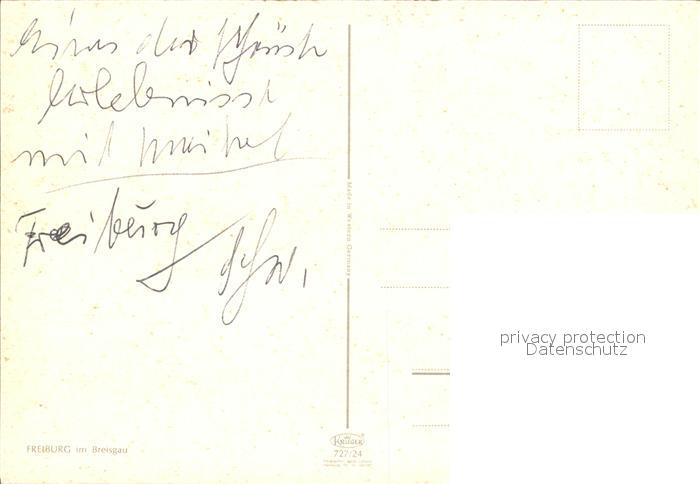 Eines der schönst
Erlebnisse
mit
Freiburg
Made in Western Germany
privacy protection
Datenschutz
FREIBURG im Breisgau
KRÜGER
727/24